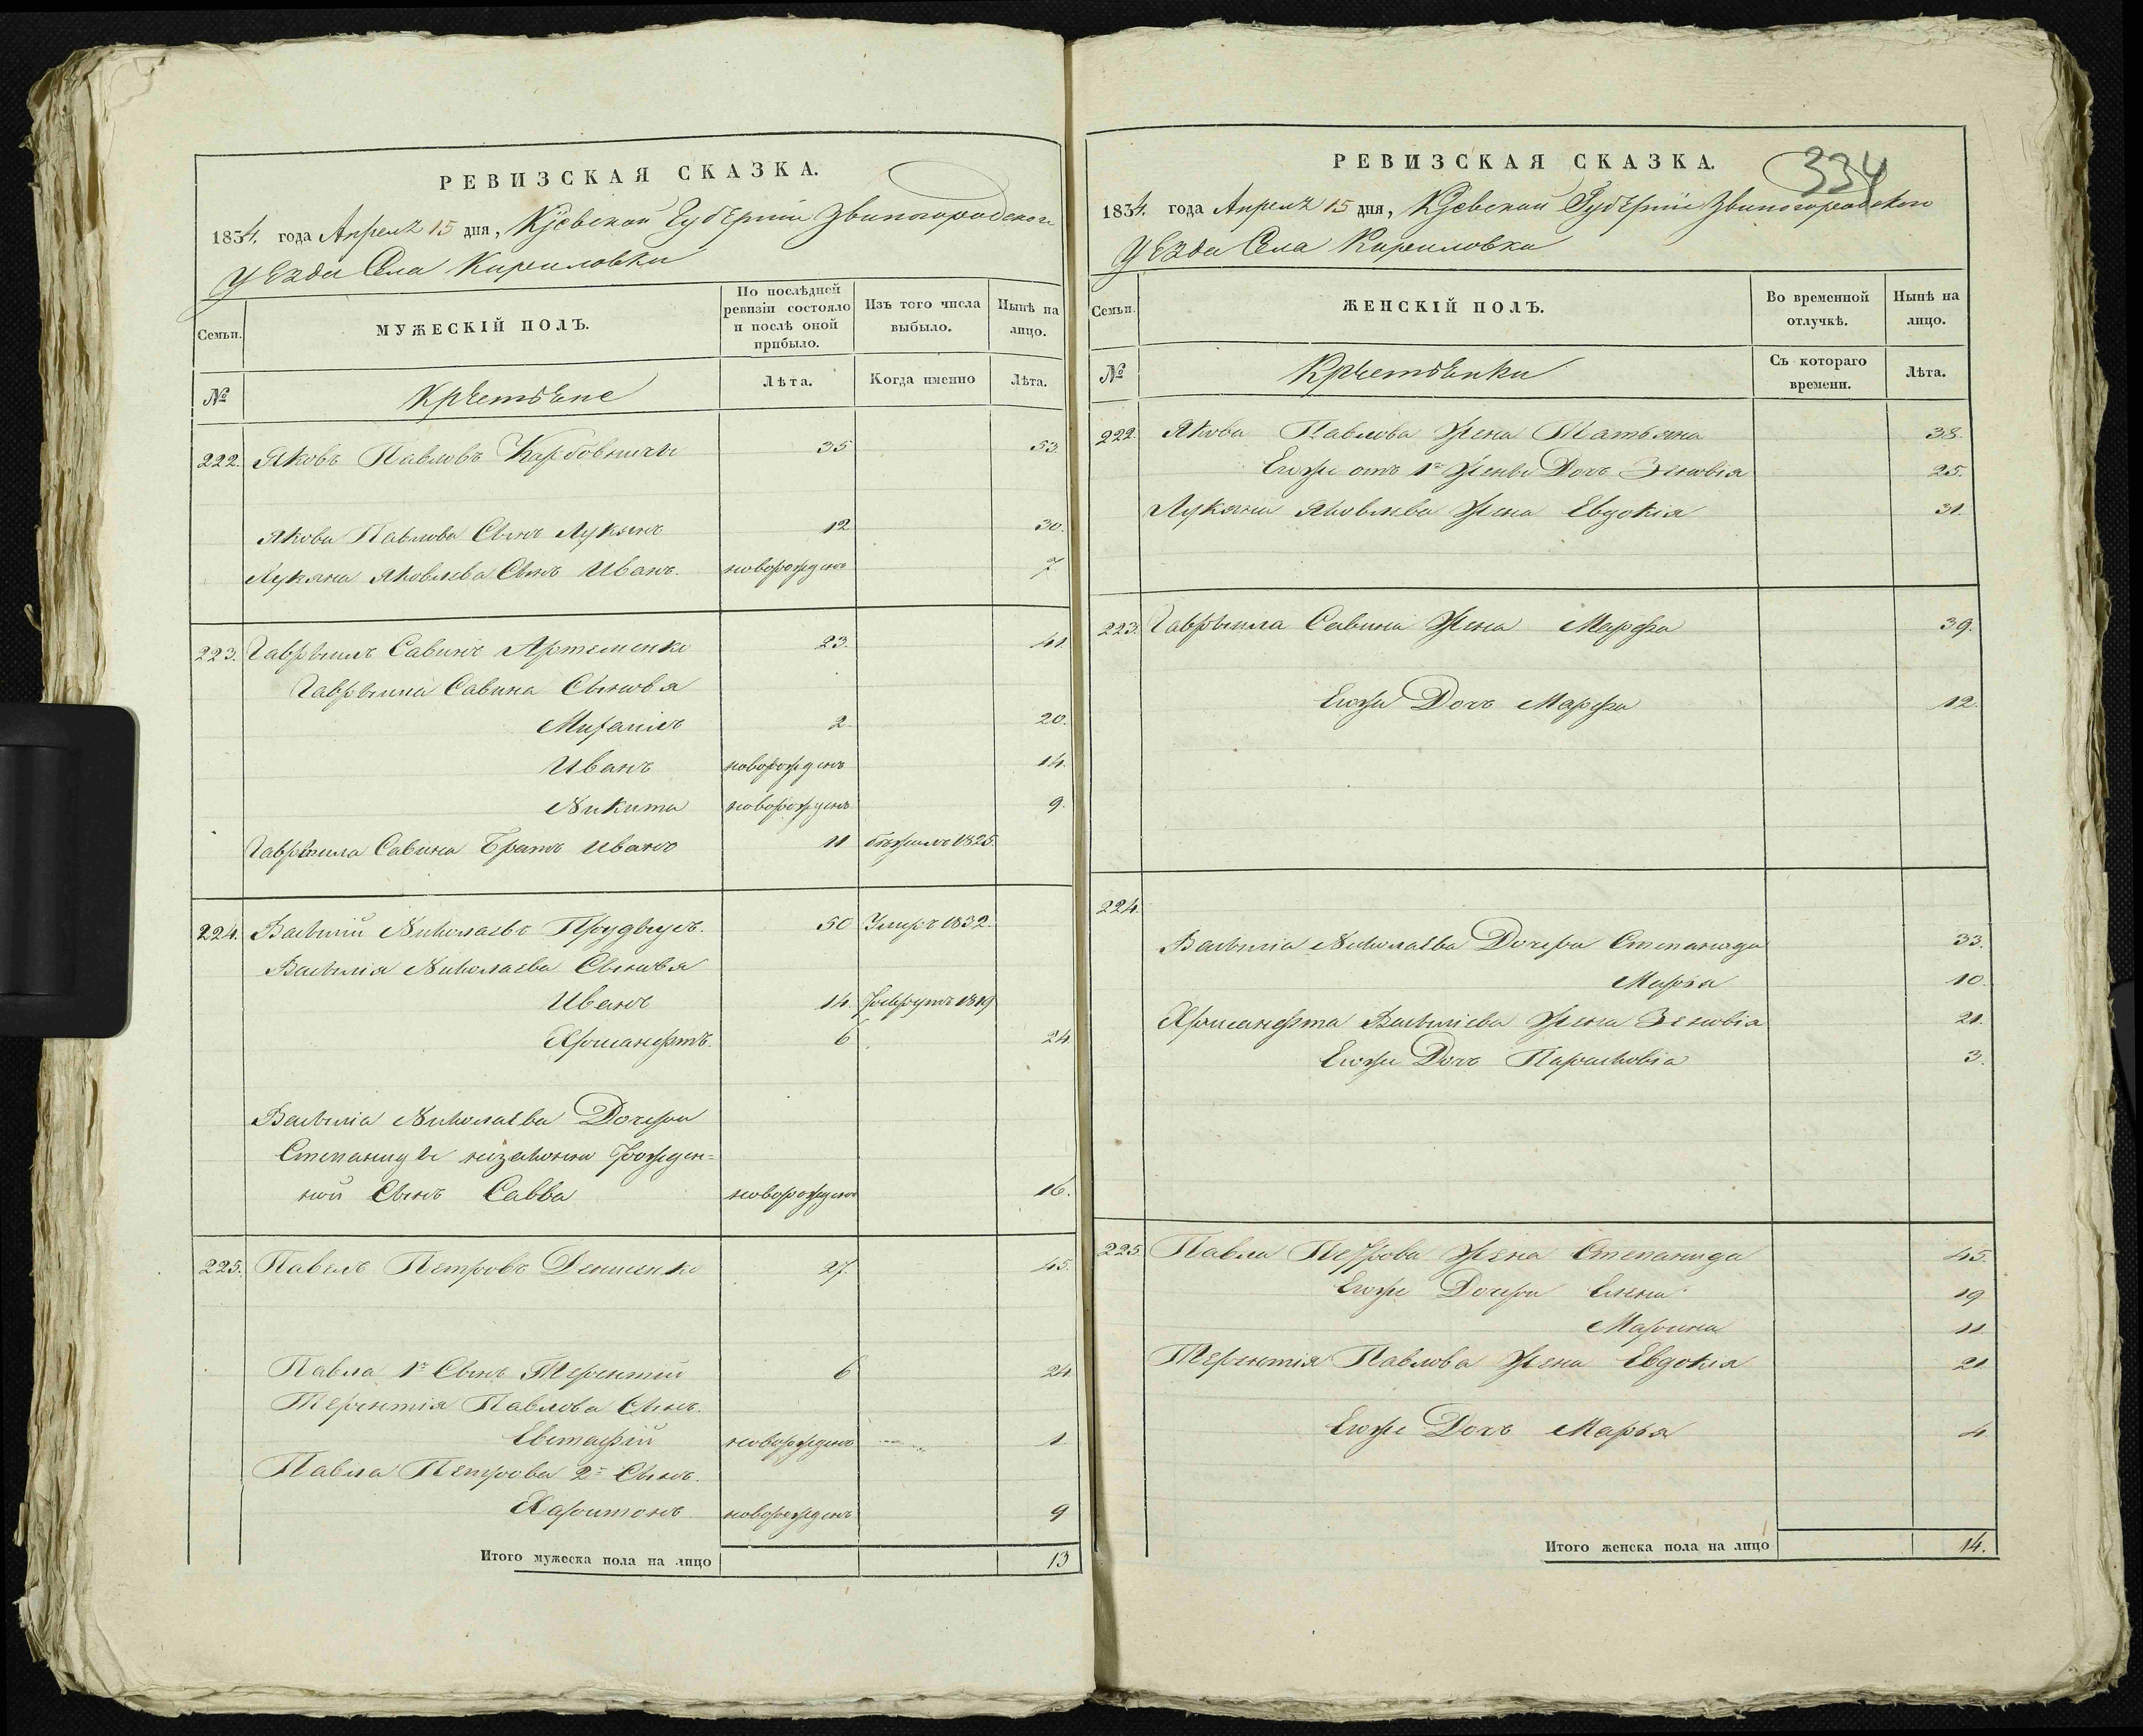 РЕВИЗСКАЯ СКАЗКА.
1834. года Апреля 15 дня, Кіевской Губерніи Звиногородского
Уезда Села Кириловки
Семьи.
МУЖЕСКІЙ ПОЛЪ.
По послѣдней ревизіи состояло и послѣ оной прибыло.
Изъ того числа выбыло.
Нынѣ на лицо.
№
Крѣстьѣне
Лѣта.
Когда именно
Лѣта.
222. Яковъ Павловъ 35 53.
Якова Павлова Сынъ Лукьянъ 12 30.
Лукяна Яковлева Сынъ Иванъ. новорожденъ 7
223. Гаврыилъ Савинъ Артеменко 23. 41.
Гаврыила Савина Сыновья
Михаилъ 2 20.
Иванъ новорожденъ 14.
Никита новорожденъ 9.
Гаврыила Савина Братъ Иванъ 11 бежалъ 1825.
224. Василій Николаевъ 50 Умеръ 1832.
Василія Николаева Сыновья
Иванъ 14. рекрутъ 1819
Хрисанфтъ. 6 24
Василіа Николаева Дочери
Степаниды незаконно рожден=
ной Сынъ Савва новорожденъ 16.
225. Павелъ Петровъ Денисенко 27. 45.
Павла 1й Сынъ Терентий 6 24
Терентія Павлова Сынъ.
Евстафій новорожденъ 1
Павла Петрова 2й Сынъ.
Харитонъ новорожденъ 9
Итого мужеска пола на лицо 13
334
РЕВИЗСКАЯ СКАЗКА.
1834. года Апреля 15 дня, Кіевской Губерніи Звиногородского
Уезда Села Кириловки
Семьи.
ЖЕНСКІЙ ПОЛЪ.
Во временной отлучкѣ.
Нынѣ на лицо.
№
Крѣстьѣнки
Съ котораго времени.
Лѣта.
222. Якова Павлова Жена Татьяна 38.
Егоже отъ 1й Жены Дочь Зеновія 25.
Лукяна Яковлева Жена Евдокія 31.
223. Гаврыила Савина Жена Марфа 39.
Егоже Дочь Марфа 12.
224.
Василіа Николаева Дочери Степанида 33.
Марья 10.
Хрисанфта Василіева Жена Зеновіа 21.
Егоже Дочь Парасковіа 3.
225. Павла Петрова Жена Степанида 45.
Егоже Дочери Елена 19
Марина 11
Терентія Павлова Жена Евдокія 21
Егоже Дочь Марья 4
Итого женска пола на лицо 14.